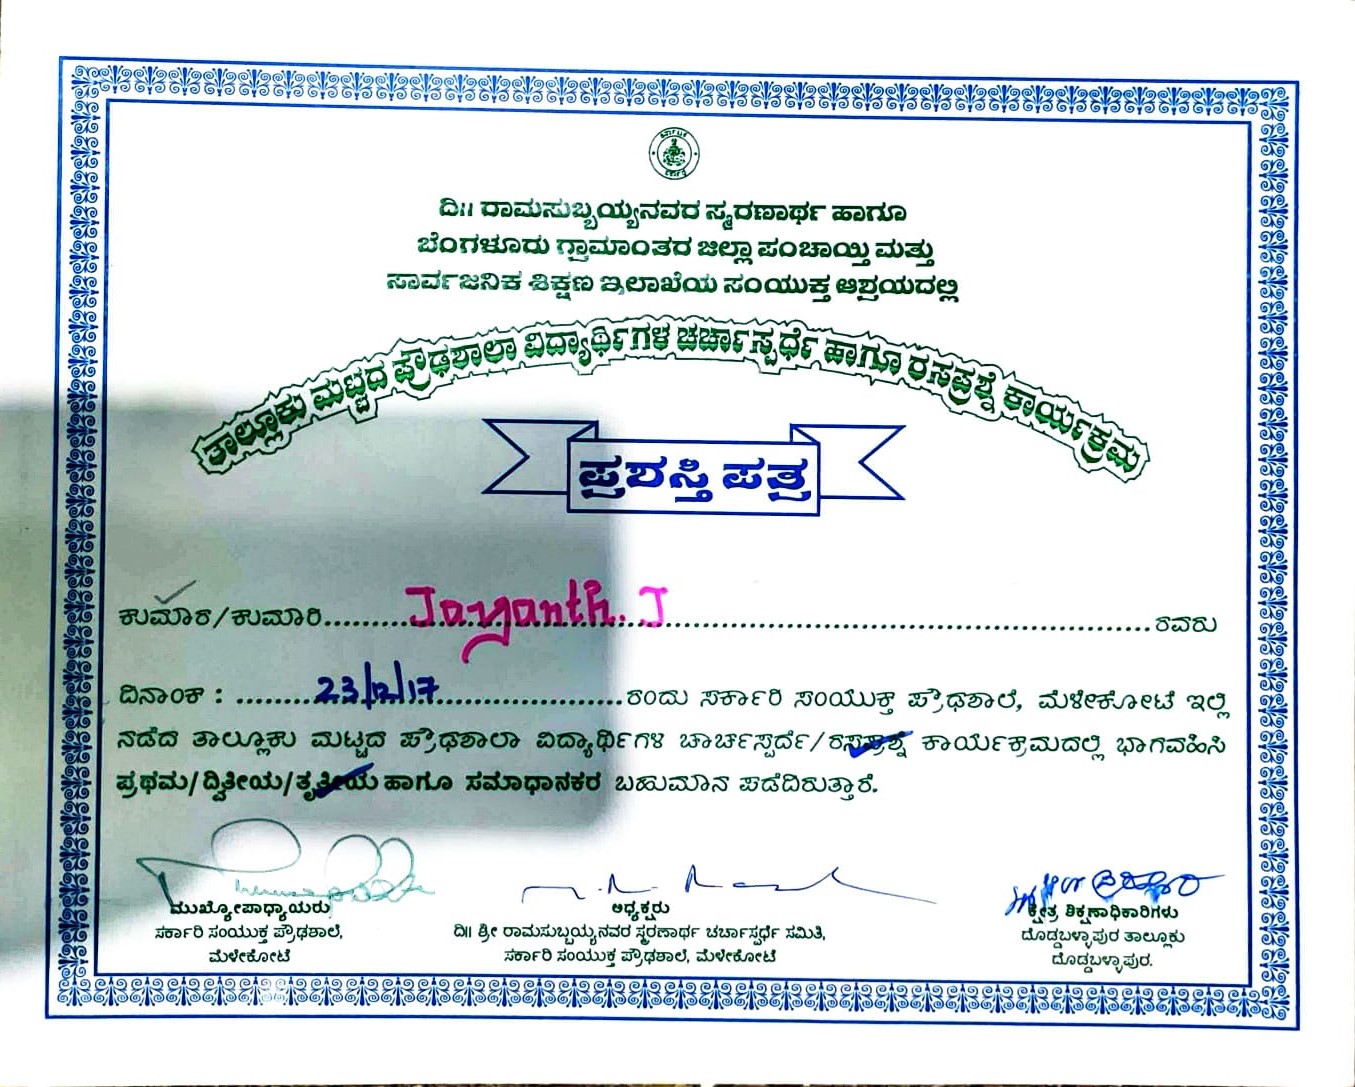 ದಿ।। ರಾಮಸುಬ್ಬಯ್ಯನವರ ಸ್ಮರಣಾರ್ಥ ಹಾಗೂ
ಬೆಂಗಳೂರು ಗ್ರಾಮಾಂತರ ಜಿಲ್ಲಾ ಪಂಚಾಯ್ತಿ ಮತ್ತು
ಸಾರ್ವಜನಿಕ ಶಿಕ್ಷಣ ಇಲಾಖೆಯ ಸಂಯುಕ್ತ ಆಶ್ರಯದಲ್ಲಿ
ತಾಲ್ಲೂಕು ಮಟ್ಟದ ಪ್ರೌಢಶಾಲಾ ವಿದ್ಯಾರ್ಥಿಗಳ ಚರ್ಚಾಸ್ಪರ್ಧೆ ಹಾಗೂ ರಸಪ್ರಶ್ನೆ ಕಾರ್ಯಕ್ರಮ
ಪ್ರಶಸ್ತಿ ಪತ್ರ
ಕುಮಾರ/ಕುಮಾರಿ.........Jayanth. J.........ರವರು
ದಿನಾಂಕ : .........23/12/17.........ರಂದು ಸರ್ಕಾರಿ ಸಂಯುಕ್ತ ಪ್ರೌಢಶಾಲೆ, ಮೆಳೇಕೋಟೆ ಇಲ್ಲಿ
ನಡೆದ ತಾಲ್ಲೂಕು ಮಟ್ಟದ ಪ್ರೌಢಶಾಲಾ ವಿದ್ಯಾರ್ಥಿಗಳ ಚಾರ್ಚಸ್ಪರ್ದೆ/ರಸಪ್ರಶ್ನೆ ಕಾರ್ಯಕ್ರಮದಲ್ಲಿ ಭಾಗವಹಿಸಿ
ಪ್ರಥಮ/ದ್ವಿತೀಯ/ತೃತೀಯ ಹಾಗೂ ಸಮಾಧಾನಕರ ಬಹುಮಾನ ಪಡೆದಿರುತ್ತಾರೆ.
ಮುಖ್ಯೋಪಾಧ್ಯಾಯರು
ಸರ್ಕಾರಿ ಸಂಯುಕ್ತ ಪ್ರೌಢಶಾಲೆ,
ಮೆಳೇಕೋಟೆ
ಅಧ್ಯಕ್ಷರು
ದಿ।। ಶ್ರೀ ರಾಮಸುಬ್ಬಯ್ಯನವರ ಸ್ಮರಣಾರ್ಥ ಚರ್ಚಾಸ್ಪರ್ಧೆ ಸಮಿತಿ,
ಸರ್ಕಾರಿ ಸಂಯುಕ್ತ ಪ್ರೌಢಶಾಲೆ, ಮೆಳೇಕೋಟೆ
ಕ್ಷೇತ್ರ ಶಿಕ್ಷಣಾಧಿಕಾರಿಗಳು
ದೊಡ್ಡಬಳ್ಳಾಪುರ ತಾಲ್ಲೂಕು
ದೊಡ್ಡಬಳ್ಳಾಪುರ.